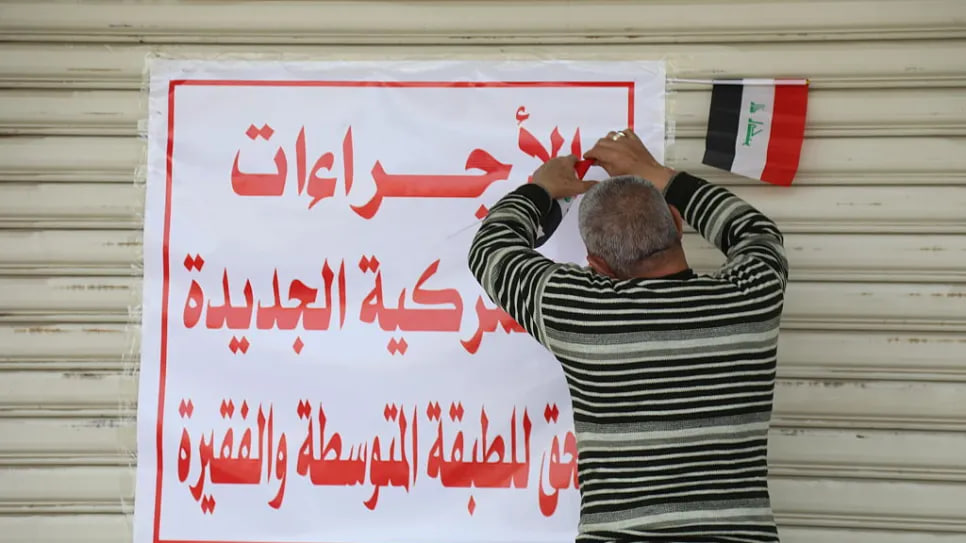 الأجراءات
الجديدة
للطبقة المتوسطة والفقيرة